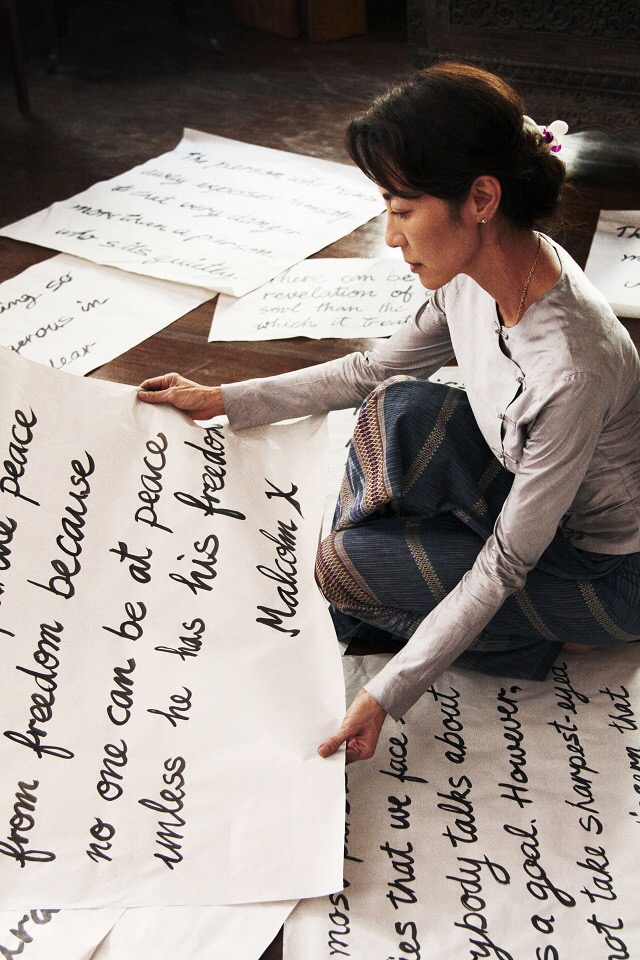 The person who runs
away exposes himself
to that very danger
more than a person
who sits quietly.
There can be
revelation of
soul than the
which it treat
ing-so
erous in
peace
from freedom because
no one can be at peace
unless he has his freedom
Malcolm X
most
ies that we face
ybody talks about
s a goal. However,
not take sharpest-eyed
that